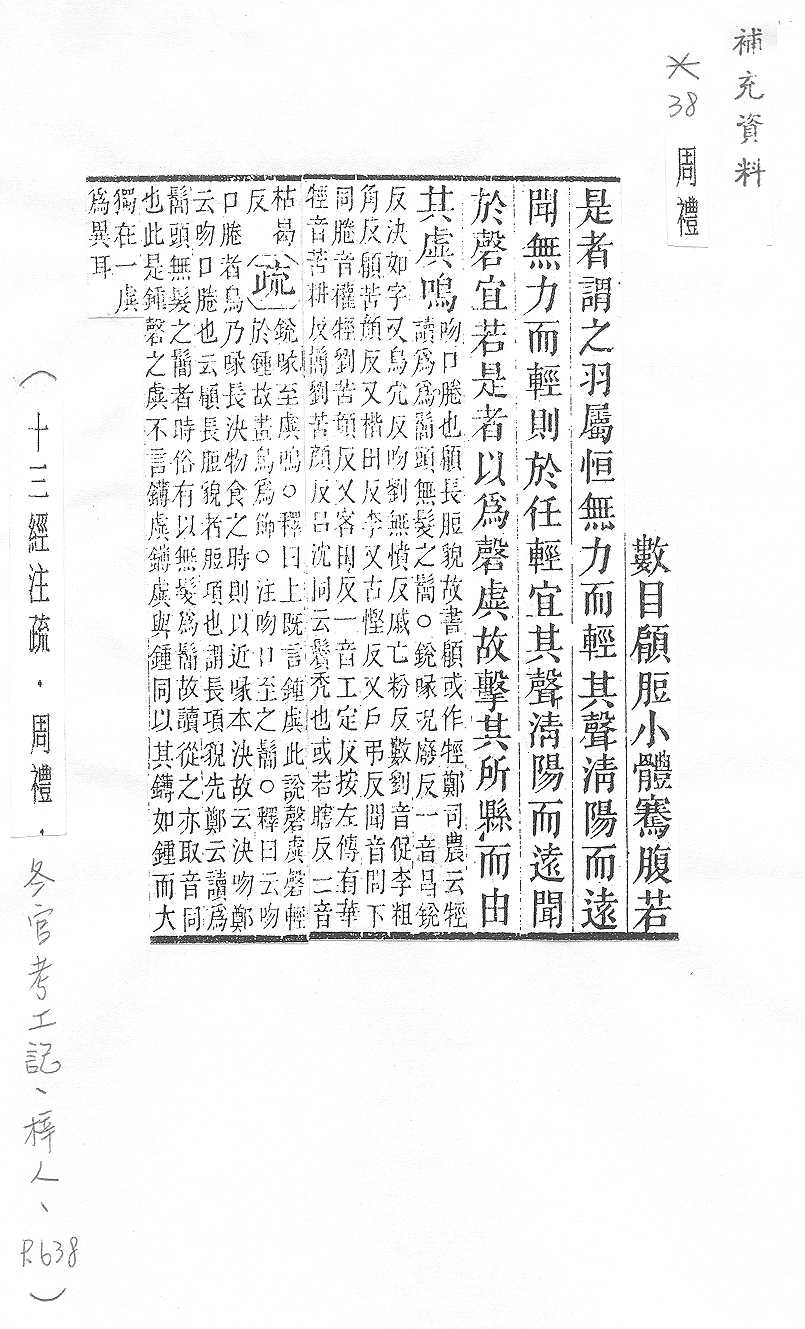 補充資料
＊38 周禮
數目顅脰小體騫腹若
是者謂之羽屬恒無力而輕其聲淸陽而遠
聞無力而輕則於任輕宜其聲淸陽而遠聞
於磬宜若是者以爲磬虡故擊其所縣而由
其虡鳴
吻口腃也顅長脰貌故書顅或作牼鄭司農云牼
讀爲爲鬜頭無髮之鬜○銳喙況廢反一音昌銳
反決如字又烏穴反吻劉無憤反戚亡粉反數劉音促李粗
角反顅苦顏反又楷田反李又古慳反又戶弔反聞音問下
同腃音權牼劉苦頸反又客田反一音工定反按左傳有華
牼音苦耕反鬜劉苦顏反呂沈同云鬢禿也或若瞎反一音
枯曷
反
疏
銳喙至虡鳴○釋曰上旣言鍾虡此說磬虡磬輕
於鍾故畫鳥爲飾○注吻口至之鬜○釋曰云吻
口腃者鳥乃喙長決物食之時則以近喙本決故云決吻鄭
云吻口腃也云顅長脰貌者脰項也謂長項貌先鄭云讀爲
鬜頭無髮之鬜者時俗有以無髮爲鬜故讀從之亦取音同
也此是鍾磬之虡不言鏄虡鏄虡與鍾同以其鏄如鍾而大
獨在一虡
爲異耳
（十三經注疏．周禮．冬官考工記、梓人、P.638）